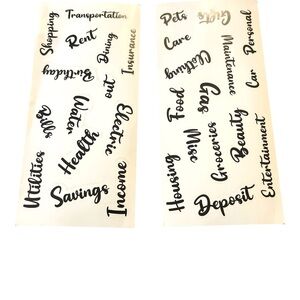 Transportation
Shopping
Rent
Dining
out
Insurance
Birthday
Bills
Water
Electric
Health
Utilities
Savings
Income
Pets
Gifts
Personal
Care
Clothing
Maintenance
Car
Food
Gas
Misc
Groceries
Beauty
Entertainment
Housing
Deposit